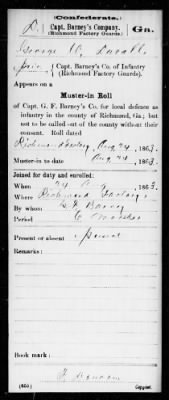 (Confederate.)
D Capt. Barney's Company, Gn.
(Richmond Factory Guards.)
George W. Duvall
Priv., Capt. Barney's Co. of Infantry
(Richmond Factory Guards).
Appears on a
Muster-in Roll
of Capt. G. F. Barney's Co. for local defence as
infantry in the county of Richmond, Ga.; but
not to be called out of the county without their
consent. Roll dated
Richmond Factory, Aug 24, 1863.
Muster-in to date Aug 24, 1863.
Joined for duty and enrolled:
When 24 Aug, 1863.
Where Richmond Factory
By whom G F Barney
Period 6 Months
Present or absent Present
Remarks:
Book mark:
(465) Copyist.